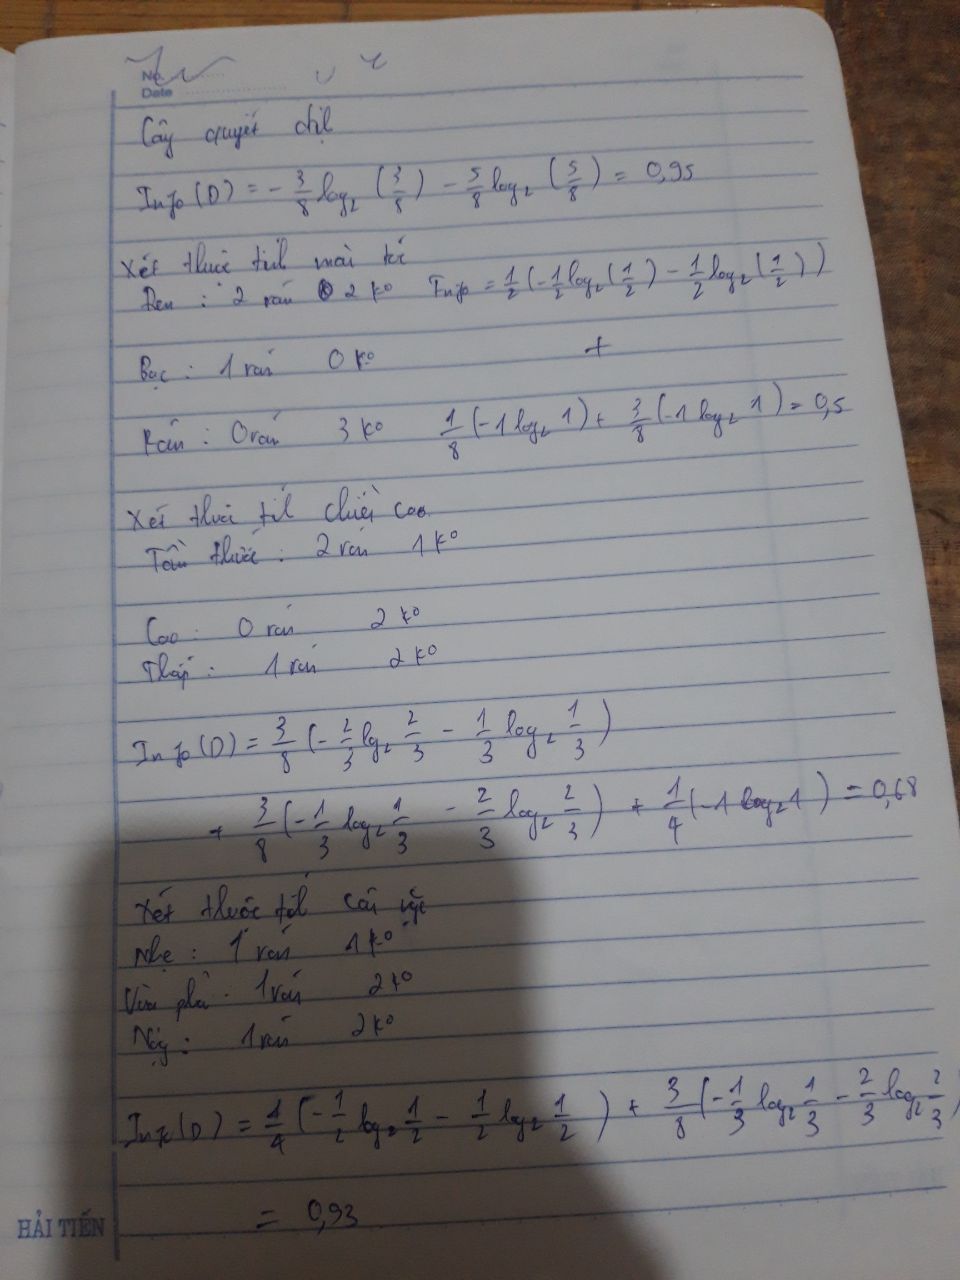 No.
Date
Cây quyết định
Info(D) = - 3/8 log₂ (3/8) - 5/8 log₂ (5/8) = 0,95
Xét thuộc tính màu tóc
Đen : 2 rám 2 ko Info = 1/2 (-1/2 log₂ (1/2) - 1/2 log₂ (1/2))
Bạc : 1 rám 0 ko +
Râm : 0 rám 3 ko 1/8 (-1 log₂ 1) + 3/8 (-1 log₂ 1) = 0,5
Xét thuộc tính chiều cao
Tầm thước : 2 rám 1 ko
Cao : 0 rám 2 ko
Thấp : 1 rám 2 ko
Info(D) = 3/8 (-2/3 log₂ 2/3 - 1/3 log₂ 1/3)
+ 3/8 (-1/3 log₂ 1/3 - 2/3 log₂ 2/3) + 1/4 (-1 log₂ 1) = 0,68
Xét thuộc tính cân nặng
Nhẹ : 1 rám 1 ko
Vừa phải : 1 rám 2 ko
Nặng : 1 rám 2 ko
Info(D) = 1/4 (-1/2 log₂ 1/2 - 1/2 log₂ 1/2) + 3/8 (-1/3 log₂ 1/3 - 2/3 log₂ 2/3)
= 0,93
HẢI TIẾN